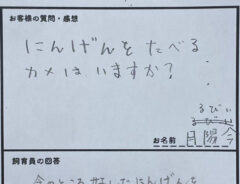 お客様の質問・感想
にんげんを たべる
カメは いますか?
るびぃ
お名前
飼育員の回答
今のところ 好んでにんげんを